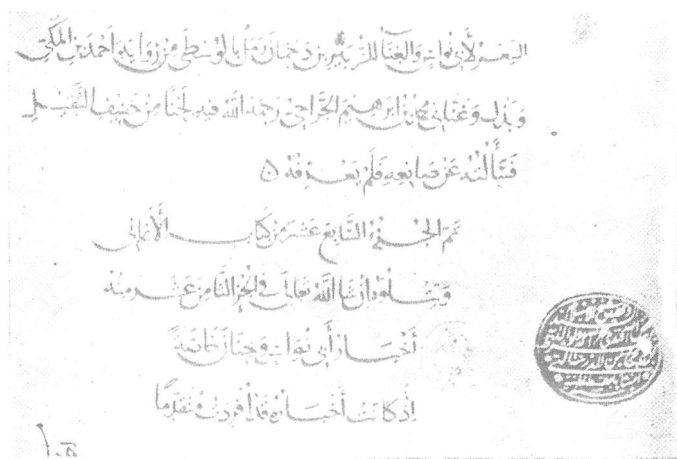 الشعر لأبي نواس والغناء للزبير بن دحمان رمل بالوسطى من رواية احمد بن المكي
وبذل وغناني محمد بن ابرهيم الجراحي رحمه الله فيه لحنا من خفيف الثقيل
فسألته عن صانعه فلم يعرفه ه
تم الجزء السابع عشر من كتاب الأغاني
ويتلوه ان شا الله تعالى في الجزء الثامن عشر منه
أخبار أبي نواس وجنان خاصة
اذ كانت أخباره قد أفردت متقدما